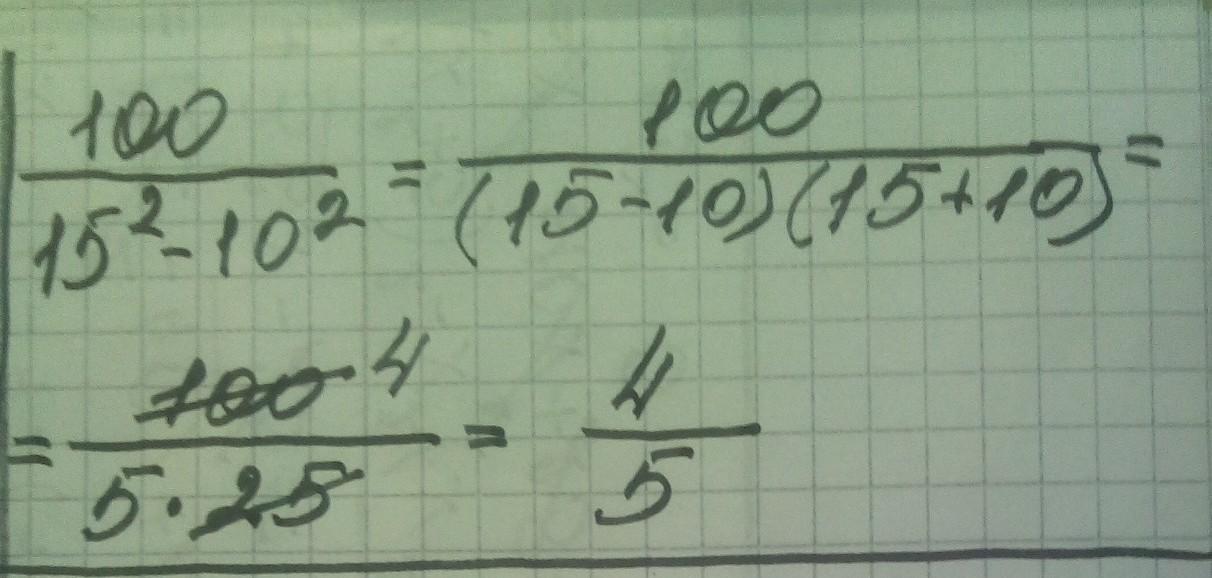 100/(15² - 10²) = 100/((15 - 10)(15 + 10)) =
= 100 4/(5 · 25) = 4/5